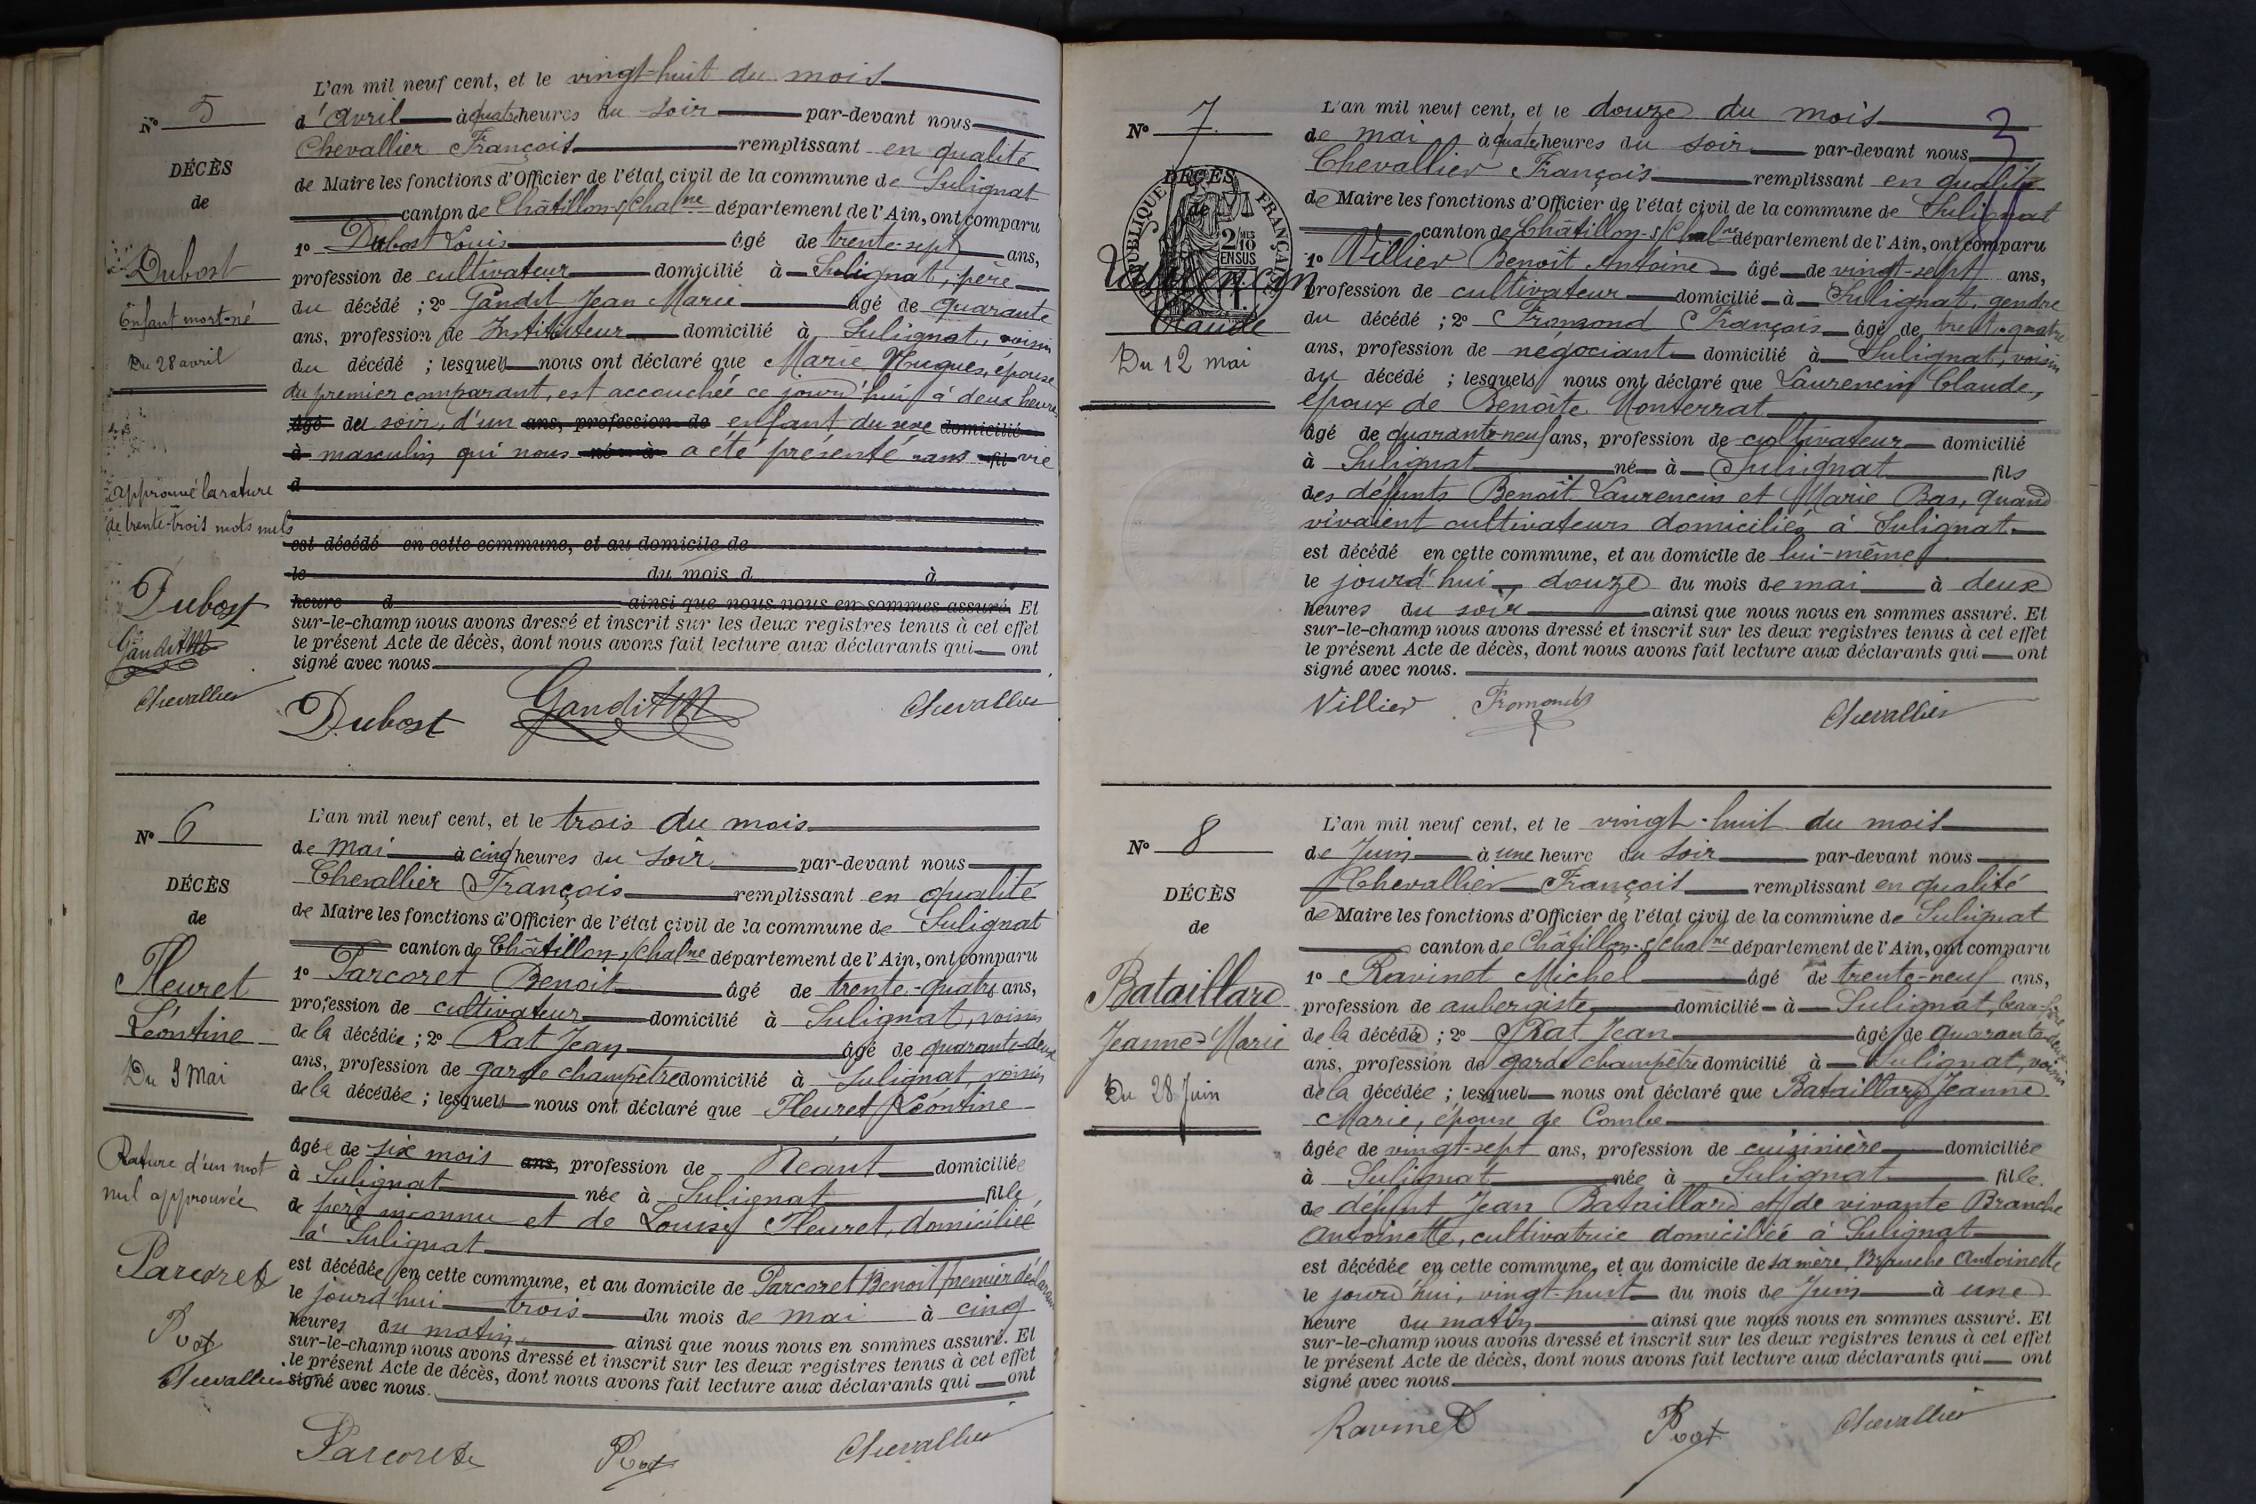 Nº 5
DÉCÈS
de
Dubost
Enfant mort-né
Du 28 avril
L'an mil neuf cent, et le vingt-huit du mois
d'avril à quatre heures du soir par-devant nous
Chevallier François remplissant en qualité
de Maire les fonctions d'Officier de l'état civil de la commune de Sulignat
canton de Châtillon-s/Chalne département de l'Ain, ont comparu
1º Dubost Louis âgé de trente-sept ans,
profession de cultivateur domicilié à Sulignat, père
du décédé ; 2º Gandit Jean Marie âgé de quarante
ans, profession de Instituteur domicilié à Sulignat, voisin
du décédé ; lesquels nous ont déclaré que Marie Hugues, épouse
du premier comparant, est accouchée ce jourd'hui à deux heures
âgé du soir, d'un ans, profession de enfant du sexe domicilié
à masculin qui nous né à a été présenté sans fil vie
d
est décédé en cette commune, et au domicile de
le du mois d à
heure d ainsi que nous nous en sommes assuré. Et
sur-le-champ nous avons dressé et inscrit sur les deux registres tenus à cet effet
le présent Acte de décès, dont nous avons fait lecture aux déclarants qui ont
signé avec nous.
approuvé la rature
de trente-trois mots nuls
Dubost
Gandit JM
Chevallier
Dubost Gandit JM Chevallier
Nº 6
DÉCÈS
de
Fleuret
Léontine
Du 3 Mai
L'an mil neuf cent, et le trois du mois
de mai à cinq heures du soir par-devant nous
Chevallier François remplissant en qualité
de Maire les fonctions d'Officier de l'état civil de la commune de Sulignat
canton de Châtillon s/Chalne département de l'Ain, ont comparu
1º Parcoret Benoit âgé de trente-quatre ans,
profession de cultivateur domicilié à Sulignat, voisin
de la décédée ; 2º Rat Jean âgé de quarante-deux
ans, profession de garde champêtre domicilié à Sulignat, voisin
de la décédée ; lesquels nous ont déclaré que Fleuret Léontine
âgée de six mois ans, profession de Néant domiciliée
à Sulignat née à Sulignat fille
de père inconnu et de Louise Fleuret, domiciliée
à Sulignat
est décédée en cette commune, et au domicile de Parcoret Benoit premier déclarant
le jourd'hui trois du mois de mai à cinq
heures du matin ainsi que nous nous en sommes assuré. Et
sur-le-champ nous avons dressé et inscrit sur les deux registres tenus à cet effet
le présent Acte de décès, dont nous avons fait lecture aux déclarants qui ont
signé avec nous.
Rature d'un mot
nul approuvée
Parcoret
Rat
Chevallier
Parcoret Rat Chevallier
3
Nº 7.
DÉCÈS
de
RÉPUBLIQUE FRANÇAISE
2 MES
10
EN SUS
Laurencin
Claude
Du 12 mai
L'an mil neuf cent, et le douze du mois
de mai à quatre heures du soir par-devant nous
Chevallier François remplissant en qualité
de Maire les fonctions d'Officier de l'état civil de la commune de Sulignat
canton de Châtillon-s/Chalne département de l'Ain, ont comparu
1º Villier Benoît Antoine âgé de vingt-sept ans,
profession de cultivateur domicilié à Sulignat, gendre
du décédé ; 2º Fromond François âgé de trente-quatre
ans, profession de négociant domicilié à Sulignat, voisin
du décédé ; lesquels nous ont déclaré que Laurencin Claude,
époux de Benoîte Monterrat
âgé de quarante-neuf ans, profession de cultivateur domicilié
à Sulignat né à Sulignat fils
des défunts Benoît Laurencin et Marie Bas, quand
vivaient cultivateurs domiciliés à Sulignat
est décédé en cette commune, et au domicile de lui-même
le jourd'hui douze du mois de mai à deux
heures du soir ainsi que nous nous en sommes assuré. Et
sur-le-champ nous avons dressé et inscrit sur les deux registres tenus à cet effet
le présent Acte de décès, dont nous avons fait lecture aux déclarants qui ont
signé avec nous.
Villier Fromond Chevallier
Nº 8
DÉCÈS
de
Bataillard
Jeanne-Marie
Du 28 Juin
L'an mil neuf cent, et le vingt-huit du mois
de Juin à une heure du soir par-devant nous
Chevallier François remplissant en qualité
de Maire les fonctions d'Officier de l'état civil de la commune de Sulignat
canton de Châtillon-s/Chalne département de l'Ain, ont comparu
1º Ravinet Michel âgé de trente-neuf ans,
profession de aubergiste domicilié à Sulignat, beau-frère
de la décédée ; 2º Rat Jean âgé de quarante-deux
ans, profession de garde champêtre domicilié à Sulignat, voisin
de la décédée ; lesquels nous ont déclaré que Bataillard Jeanne
Marie, épouse de Combe
âgée de vingt-sept ans, profession de cuisinière domiciliée
à Sulignat née à Sulignat fille
de défunt Jean Bataillard et de vivante Branche
Antoinette, cultivatrice domiciliée à Sulignat
est décédée en cette commune, et au domicile de sa mère, Branche Antoinette
le jourd'hui, vingt-huit du mois de Juin à une
heure du matin ainsi que nous nous en sommes assuré. Et
sur-le-champ nous avons dressé et inscrit sur les deux registres tenus à cet effet
le présent Acte de décès, dont nous avons fait lecture aux déclarants qui ont
signé avec nous
Ravinet Rat Chevallier